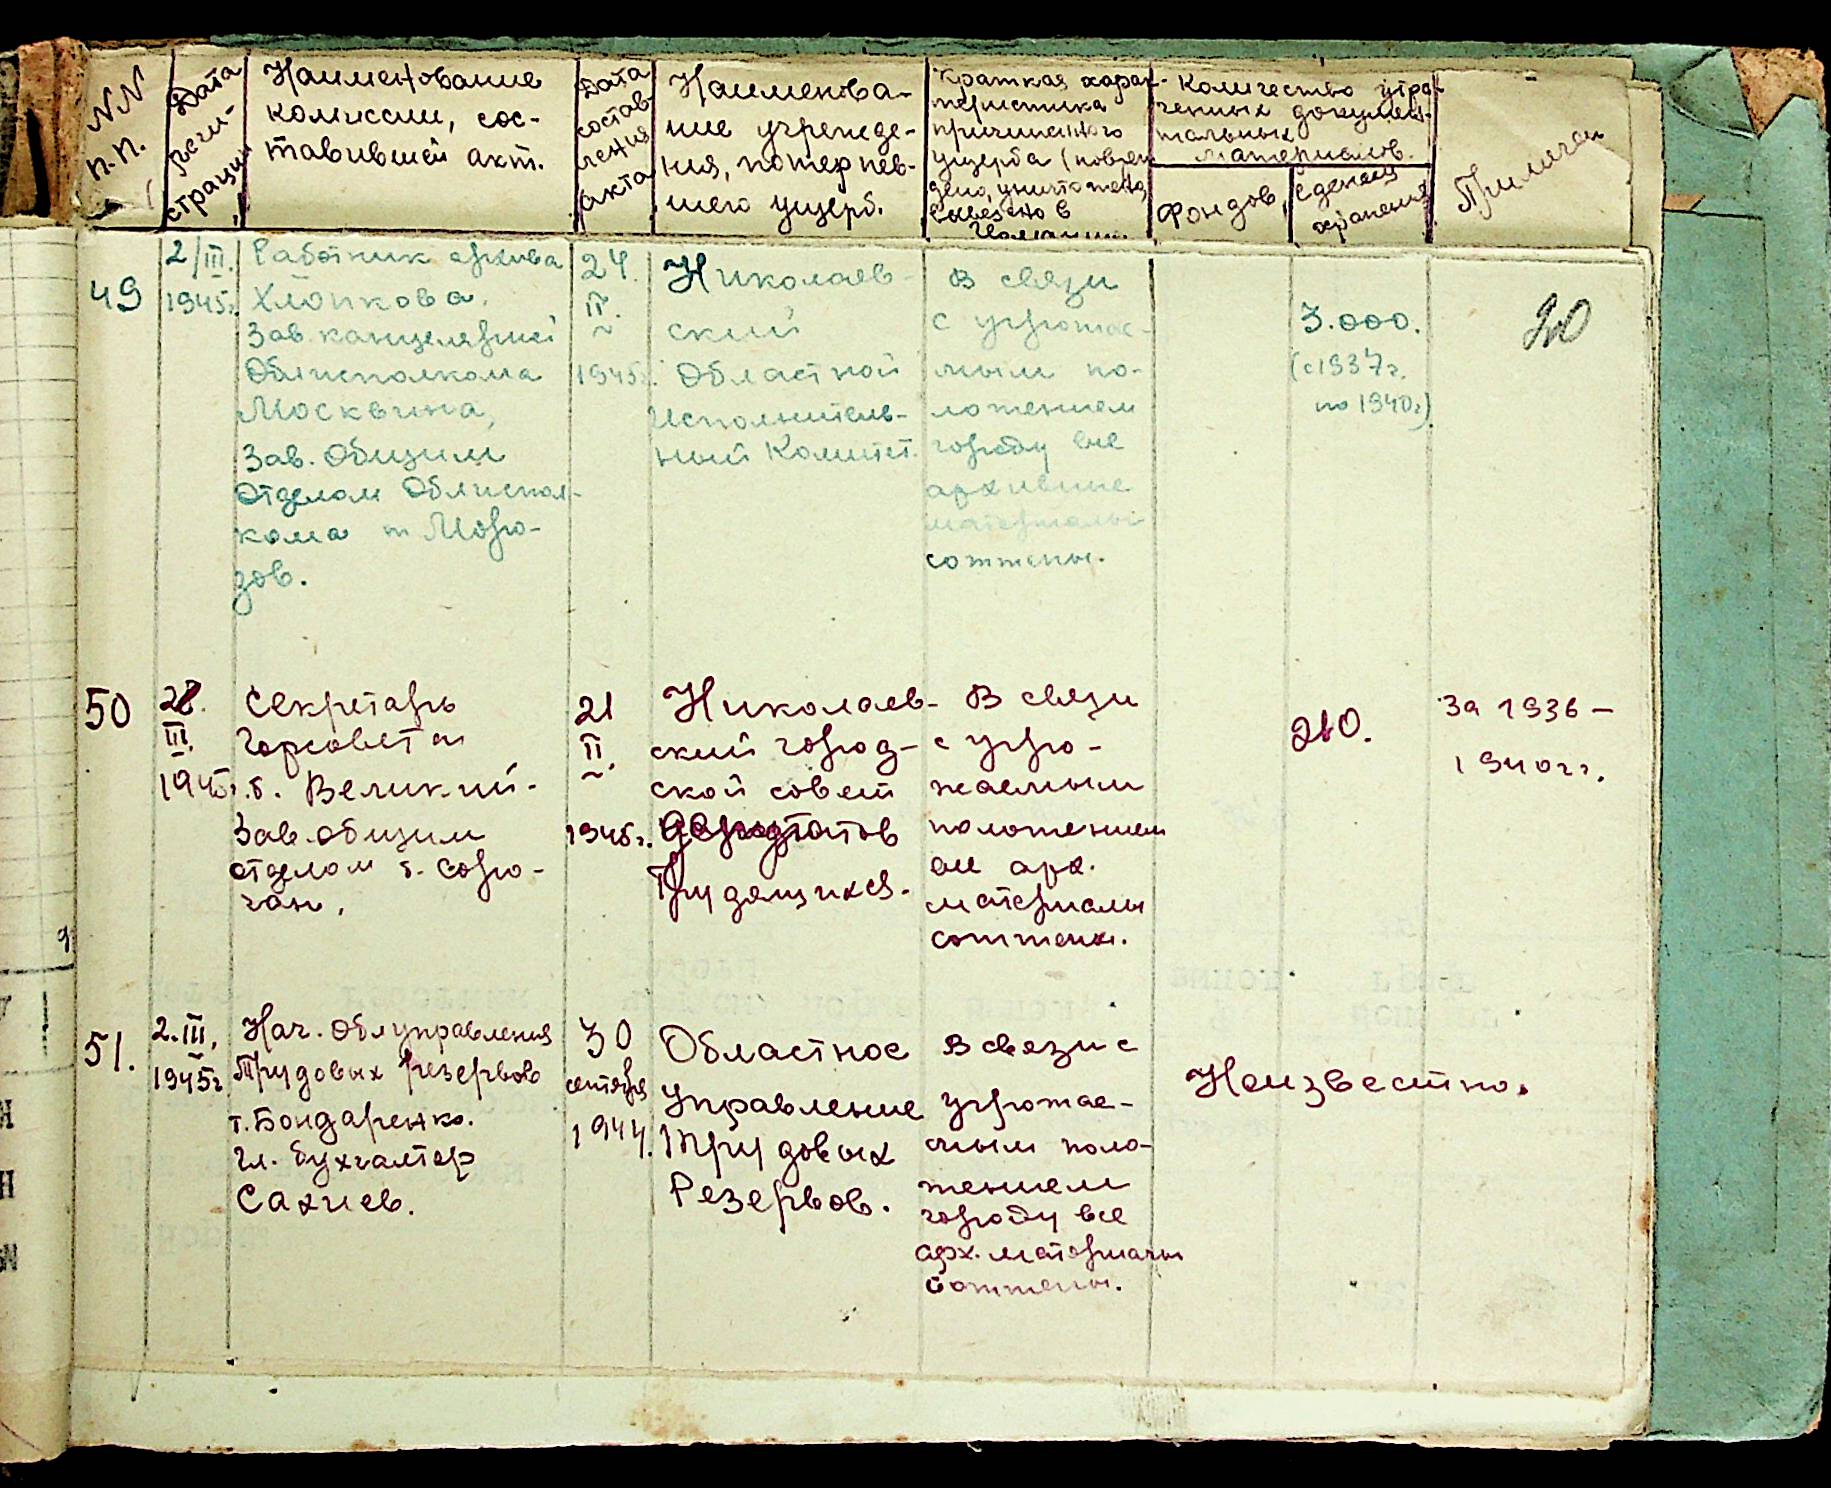 NN
п.п.
Дата
реги-
страции
Наименование
комиссии, сос-
тавившей акт.
Дата
состав
ления
акта
Наименова-
ние учрежде-
ния, потерпев-
шего ущерб.
Краткая харак-
теристика
причиненного
ущерба (повреж
дено, уничтожено,
свезено в
Количество утра-
ченных докумен-
тальных
материалов.
Фондов,
Единиц
хранения
Примечан
49
2/III.
1945г.
Работник архива
Хлопкова.
Зав. канцелярией
Облисполкома
Москвина,
Зав. Общим
Отделом Облиспол-
кома т Моро-
зов.
24.
II.
1945г.
Николаев-
ский
Областной
Исполнитель-
ный Комитет.
В связи
с угрожае-
мым по-
ложением
городу все
архивные
материалы
сожжены.
3.000.
(с 1937г.
по 1940г.)
50
III.
1945г.
Секретарь
Горсовета
т. Великий-
Зав. общим
отделом т. Соро-
чан.
21
II.
1945г.
Николаев-
ский город-
ской совет
депутатов
Трудящихся.
В связи
с угро-
жаемым
положением
все арх.
материалы
сожжены.
210.
За 1936-
1940гг.
51.
2.III.
1945г
Нач. Облуправления
Трудовых резервов
т. Бондаренко.
Гл. бухгалтер
Сахиев.
30
сентября
1944.
Областное
Управление
Трудовых
Резервов.
В связи с
угрожае-
мым поло-
жением
городу все
арх. материалы
сожжены.
Неизвестно.